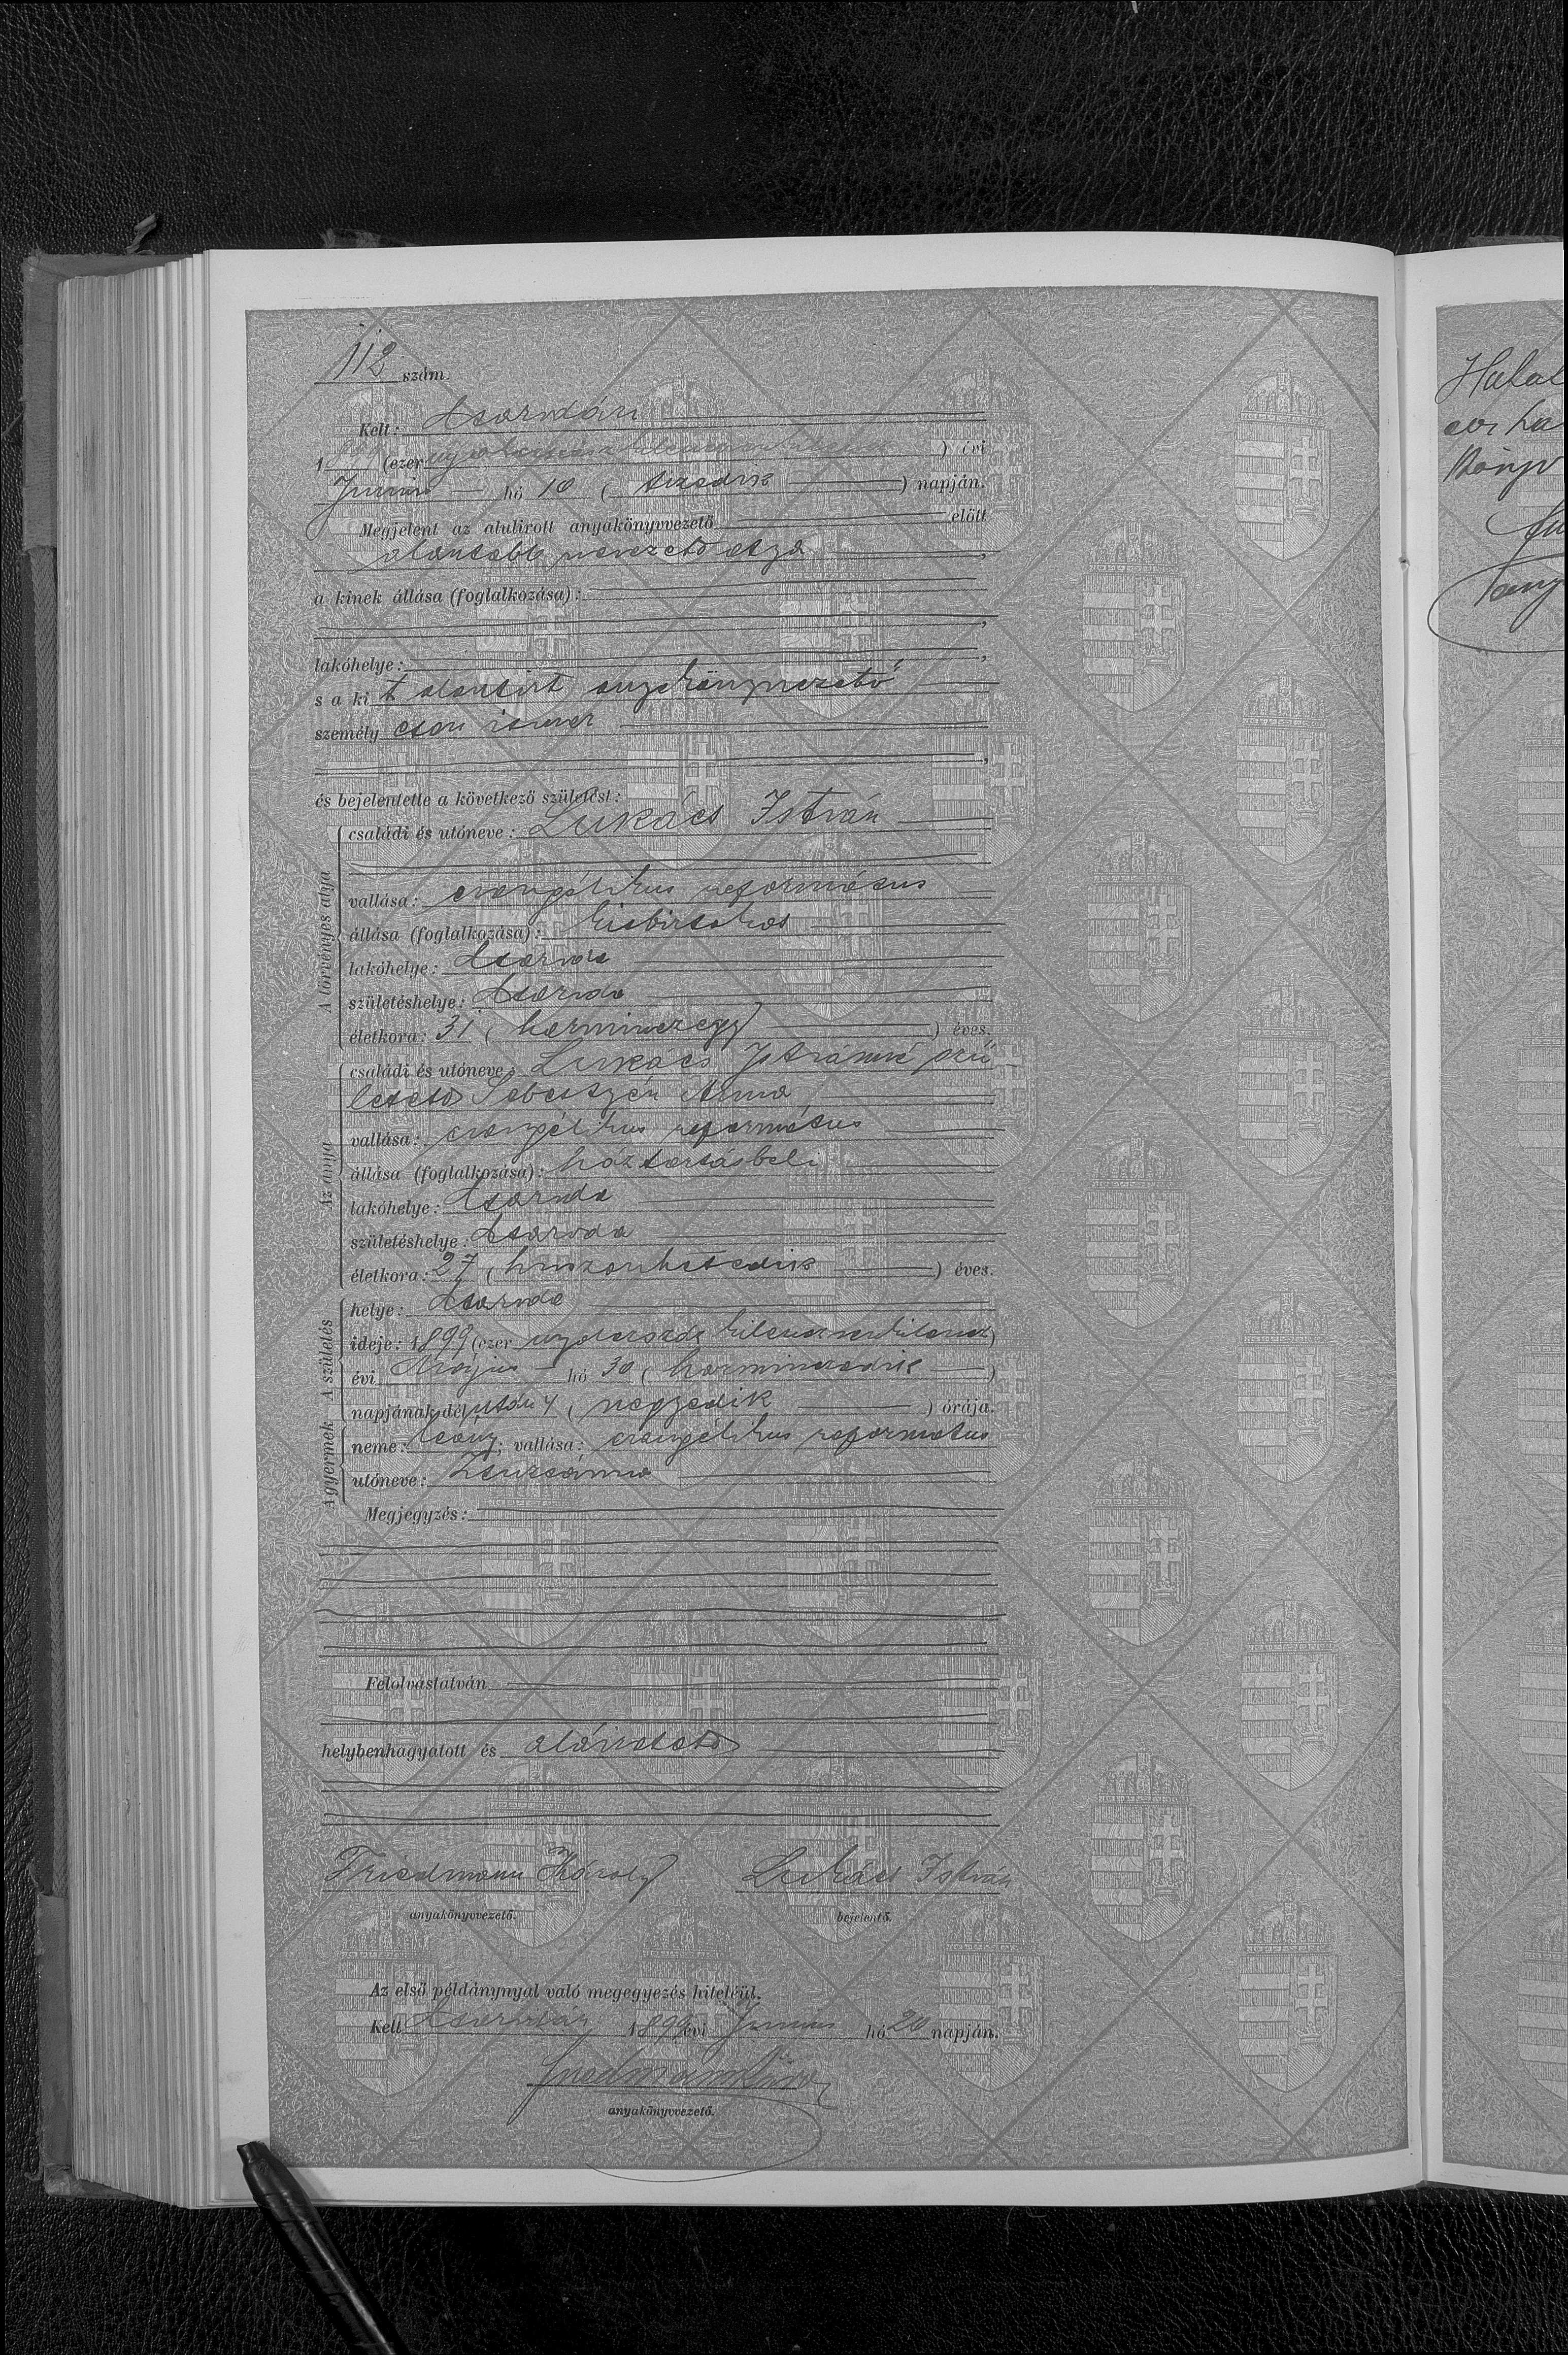 112 szám.
Kelt: Csarodán
1899 (ezer nyolczszáz kilenczvenkilencz) évi
Junius hó 10 (tizedik) napján.
Megjelent az alulirott anyakönyvvezető előtt
alantabb nevezett atya,
a kinek állása (foglalkozása):
lakóhelye:
s a kit alantirt anyakönyvvezető
személyesen ismer
és bejelentette a következő születést:
A törvényes atyja
családi és utóneve: Lukács István
vallása: evangélikus református
állása (foglalkozása): kisbirtokos
lakóhelye: Csaroda
születéshelye: Csaroda
életkora: 31 (harminczegy) éves.
Az anya
családi és utóneve: Lukács Istvánné szü
letett Sebestyén Anna
vallása: evangélikus református
állása (foglalkozása): háztartásbeli
lakóhelye: Csaroda
születéshelye: Csaroda
életkora: 27 (huszonhetedik) éves.
A születés
helye: Csaroda
ideje: 1899 (ezer nyolczszáz kilenczvenkilencz)
évi Május hó 30 (harminczadik)
napjának délután 4 (negyedik) órája.
A gyermek
neme: leány; vallása: evangélikus református
utóneve: Zsuzsánna
Megjegyzés:
Felolvastatván
helybenhagyatott és aláiratott
Friedmann Károly Lukács István
anyakönyvvezető. bejelentő.
Az első példánynyal való megegyezés hiteléül.
Kelt Csarodán 1899 évi Junius hó 20 napján.
anyakönyvvezető.